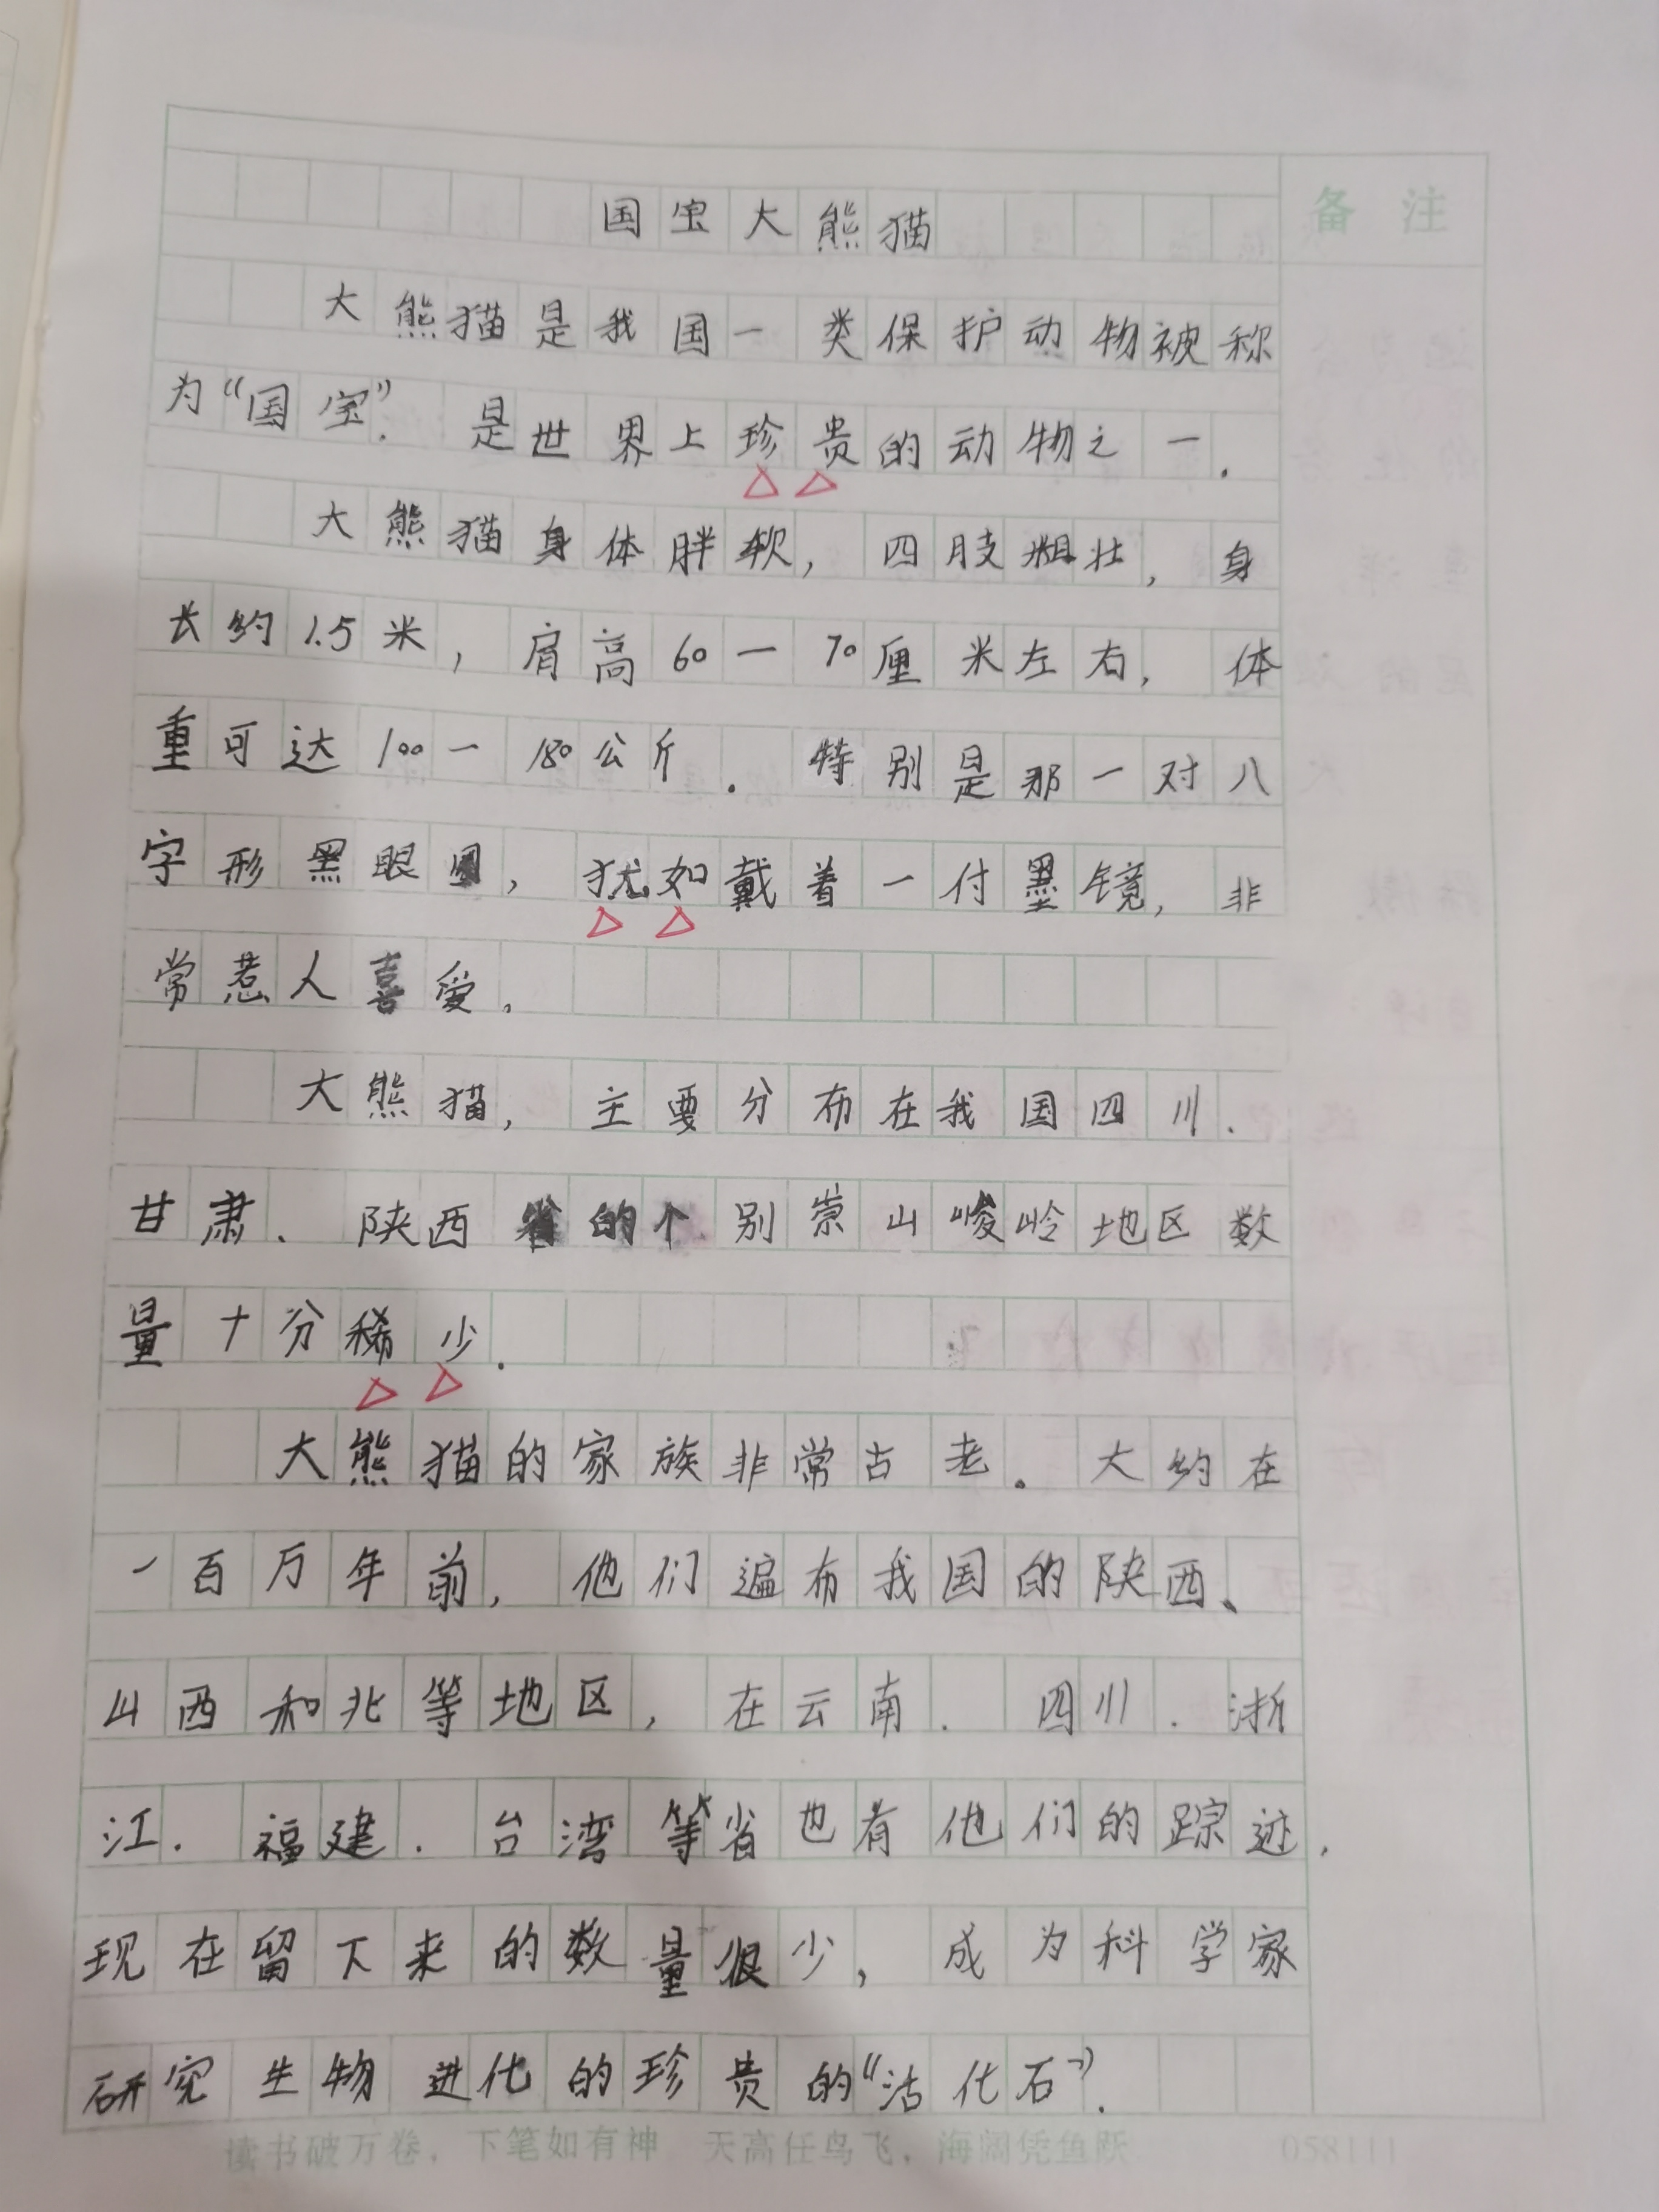 备 注
国宝大熊猫
大熊猫是我国一类保护动物被称
为“国宝”. 是世界上珍贵的动物之一.
大熊猫身体胖软,四肢粗壮,身
长约1.5米,肩高60一70厘米左右,体
重可达100一180公斤.特别是那一对八
字形黑眼圈,犹如戴着一付墨镜,非
常惹人喜爱.
大熊猫,主要分布在我国四川.
甘肃.陕西省的个别崇山峻岭地区数
量十分稀少.
大熊猫的家族非常古老。大约在
一百万年前,他们遍布我国的陕西、
山西和北等地区,在云南.四川.浙
江.福建.台湾等省也有他们的踪迹,
现在留下来的数量很少,成为科学家
研究生物进化的珍贵的“活化石”.
读书破万卷,下笔如有神 天高任鸟飞,海阔凭鱼跃 058111